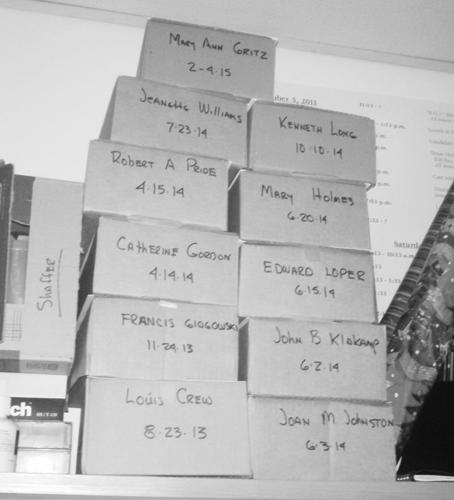 Mary Ann Gritz
2-4-15
Jeanette Williams
7·23·14
Kenneth Long
10·10·14
Robert A Pride
4·15·14
Mary Holmes
6·20·14
Catherine Gordon
4·14·14
Edward Loper
6·15·14
Francis Glogowski
11·24·13
John B Klokamp
6·2·14
Louis Crew
8·23·13
Joan M Johnston
6·3·14
Shaffer
ch
ber 5, 2011
p.m.
p.m.
Saturd